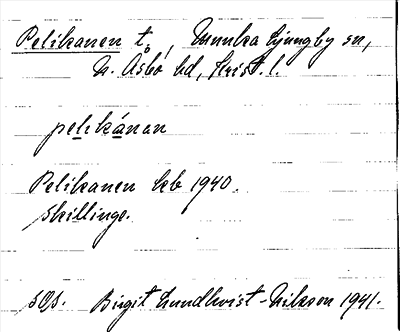 Pelikanen t., Munka Ljungby sn,
N. Åsbo hd, Krist. l.
pelikánan
Pelikanen kb 1940.
skillings.
sgs. Birgit Lundkvist-Nilsson 1941.